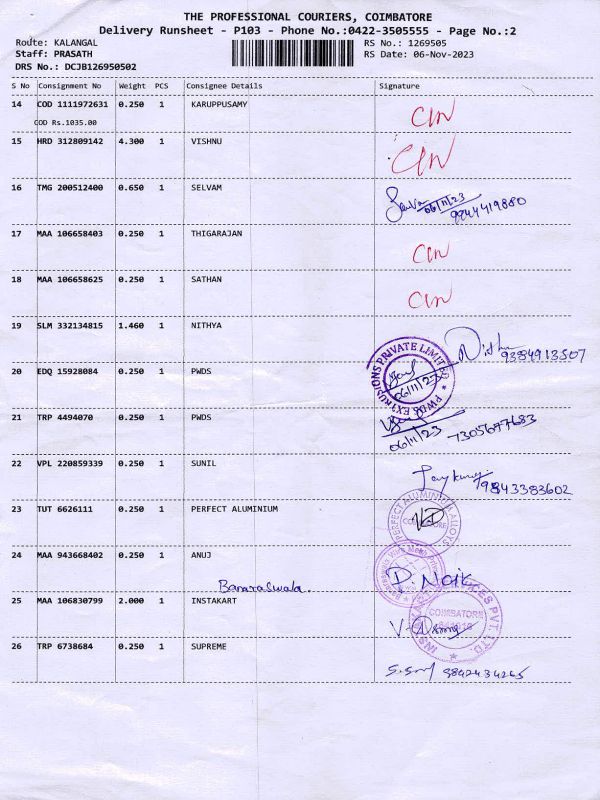 THE PROFESSIONAL COURIERS, COIMBATORE
Delivery Runsheet - P103 - Phone No.:0422-3505555 - Page No.:2
Route: KALANGAL RS No.: 1269505
Staff: PRASATH RS Date: 06-Nov-2023
DRS No.: DCJB126950502
S No Consignment No Weight PCS Consignee Details Signature
14 COD 1111972631 0.250 1 KARUPPUSAMY
COD Rs.1035.00
15 HRD 312809142 4.300 1 VISHNU
16 TMG 200512400 0.650 1 SELVAM Selva
06/11/23
9944419880
17 MAA 106658403 0.250 1 THIGARAJAN
18 MAA 106658625 0.250 1 SATHAN
19 SLM 332134815 1.460 1 NITHYA 9384913507
20 EDQ 15928084 0.250 1 PWDS PWDS EXTRUSIONS PRIVATE LIMITED
06/11/23
21 TRP 4494070 0.250 1 PWDS
06/11/23 7305677683
22 VPL 220859339 0.250 1 SUNIL 9843383602
23 TUT 6626111 0.250 1 PERFECT ALUMINIUM PERFECT ALUMINIUM ALLOYS
24 MAA 943668402 0.250 1 ANUJ P. Naik
Banaraswala.
25 MAA 106830799 2.000 1 INSTAKART COIMBATORE
26 TRP 6738684 0.250 1 SUPREME 9842434265